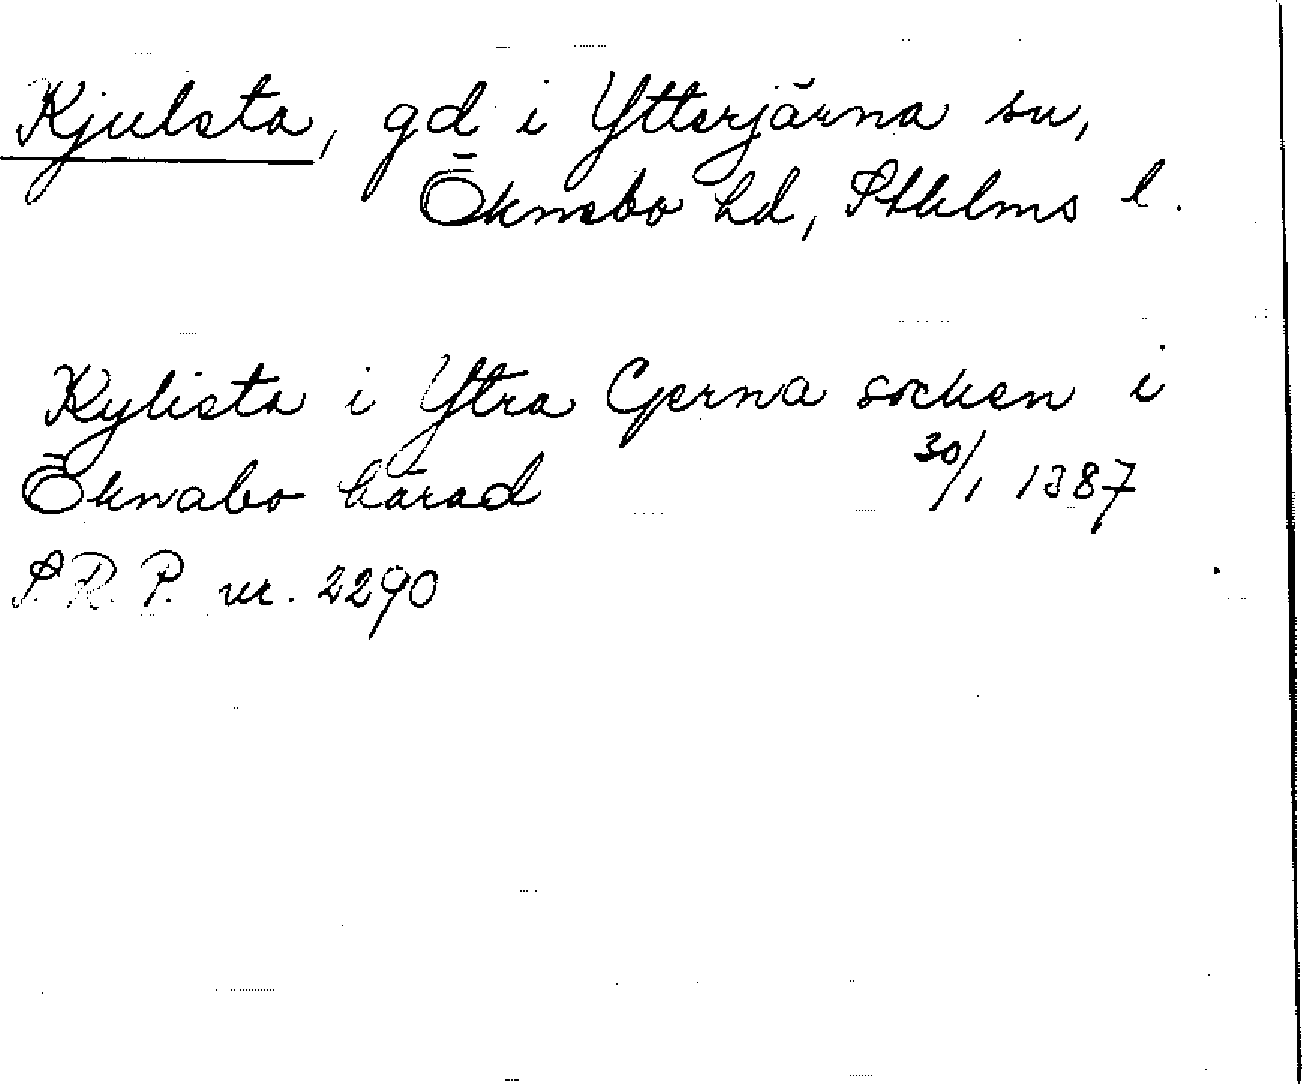 Kjulsta, gd i Ytterjärna sn,
Öknebo hd, Sthlms l.
Kylista i Ytra Gerna socken i
Öknabo härad 30/1 1387
S.R.P. nr. 2290